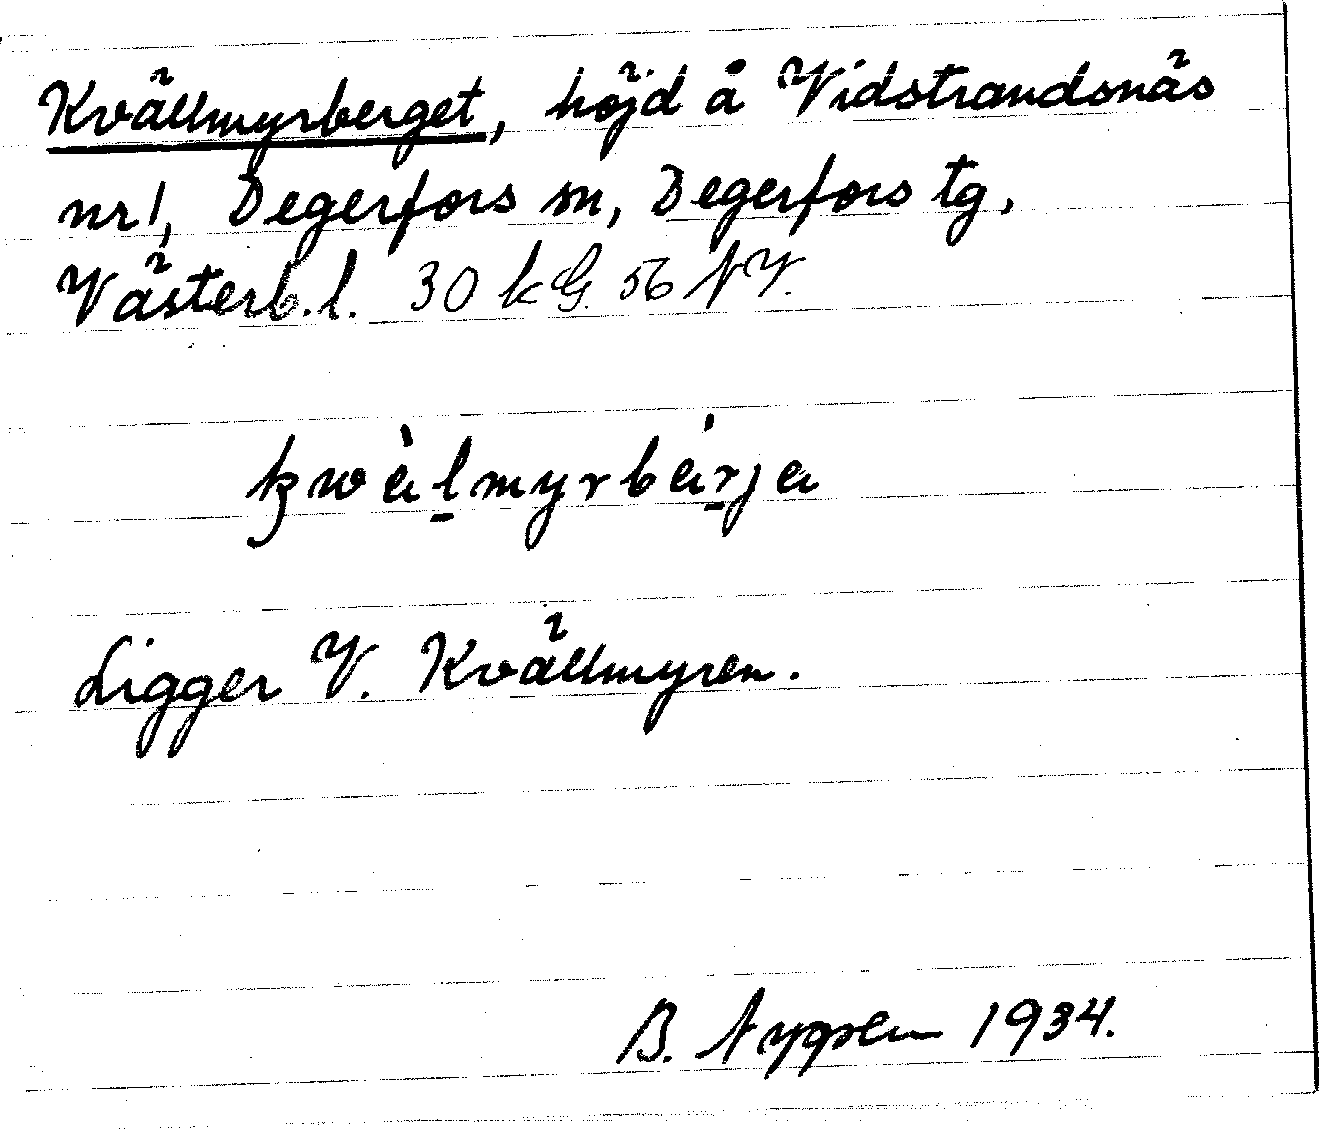 Kvällmyrberget, höjd å Vidstrandsnäs
nr 1, Degerfors sn, Degerfors tg,
Västerb. l. 30 kG. 56 NV.
kwàlmyrbárja
Ligger V. Kvällmyren.
B. 1934.